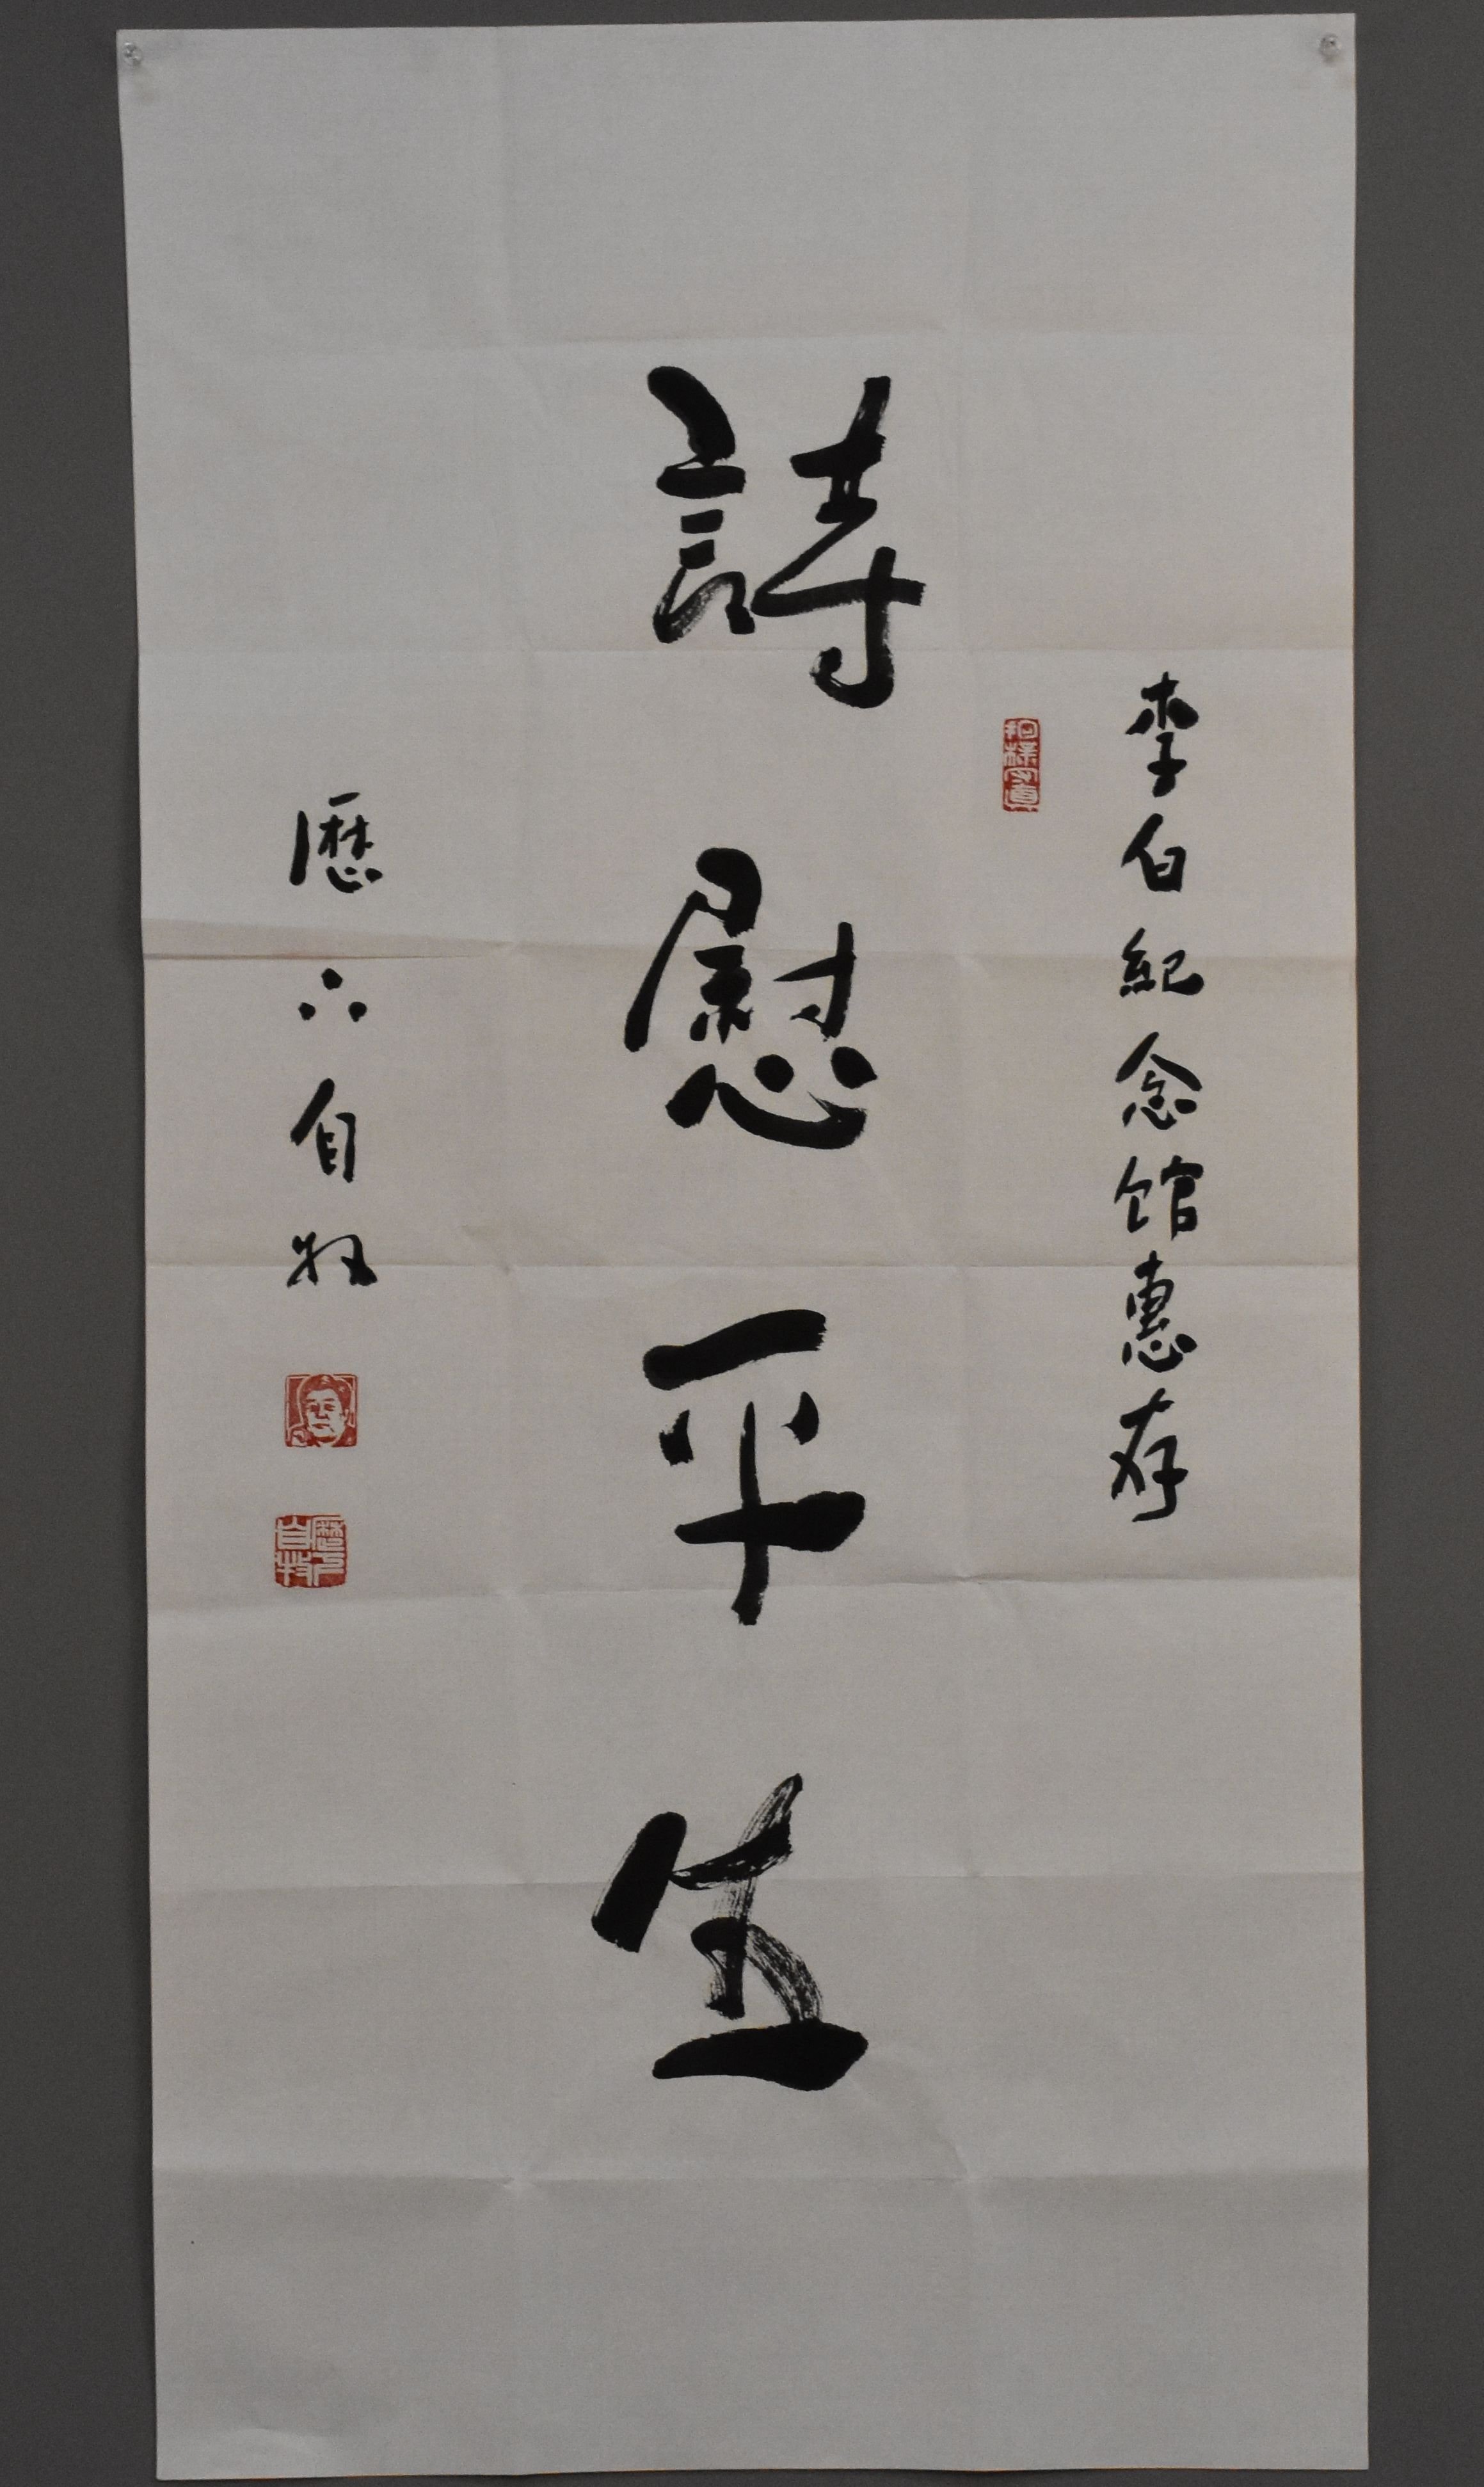 李白紀念馆惠存
詩慰平生
歷六自牧
歷六自牧